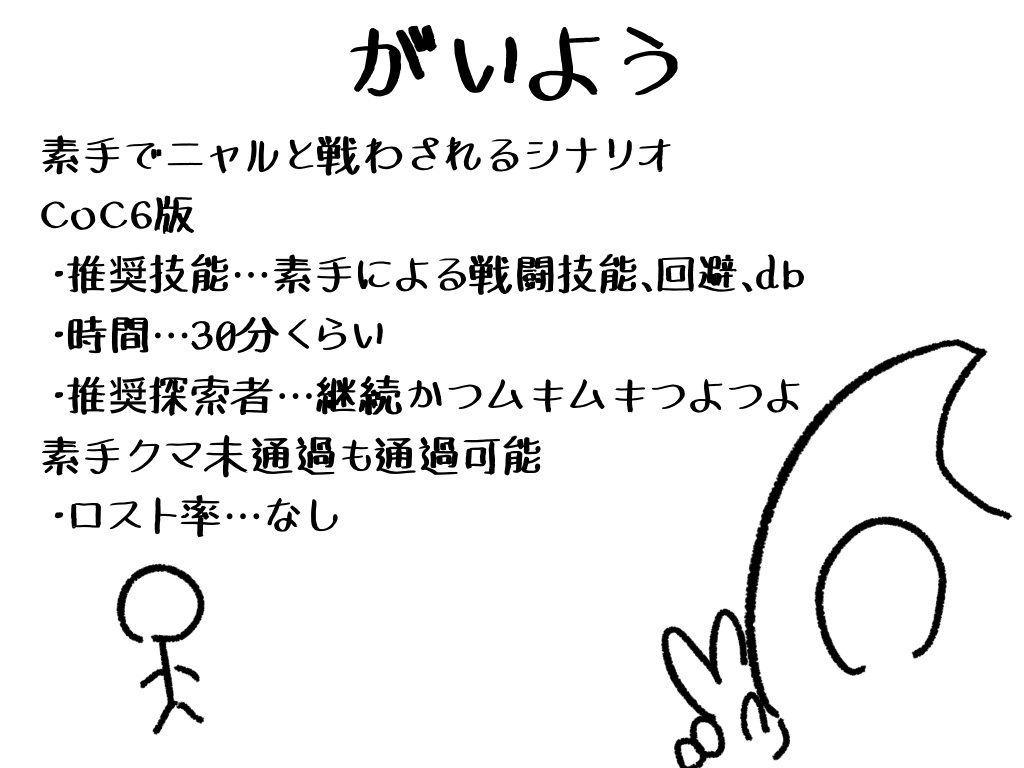 がいよう
素手でニャルと戦わされるシナリオ
CoC6版
・推奨技能…素手による戦闘技能、回避、db
・時間…30分くらい
・推奨探索者…継続かつムキムキつよつよ
素手クマ未通過も通過可能
・ロスト率…なし